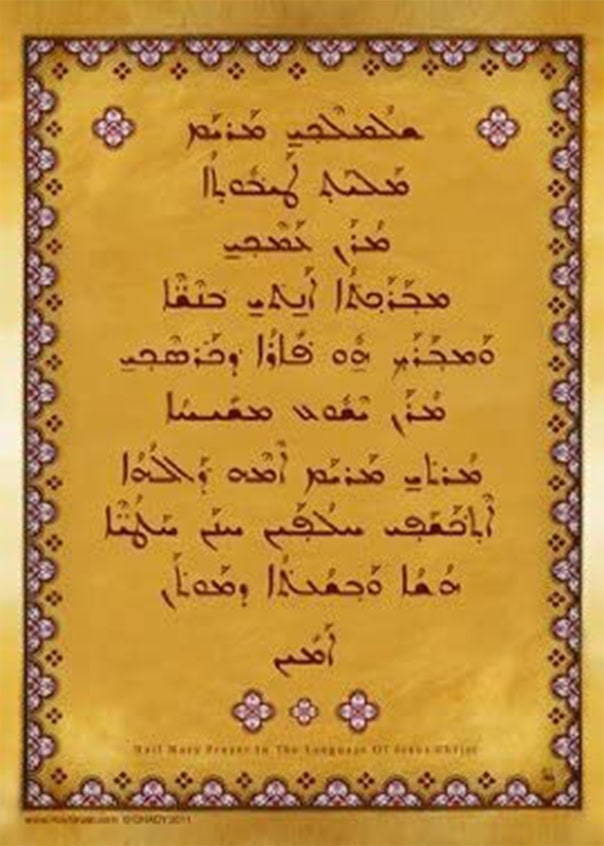 ܫܠܳܡܠܶܟ݂ܝ ܡܰܪܝܰܡ
ܡܰܠܝܰܬ݂ ܛܰܝܒܽܘܬ݂ܳܐ
ܡܳܪܰܢ ܥܰܡܶܟ݂ܝ
ܡܒܰܪܰܟ݂ܬܳܐ ܐܰܢ̱ܬܝ ܒܢܶܫ̈ܐ
ܘܰܡܒܰܪܰܟ݂ ܗܽܘ ܦܺܐܪܳܐ ܕܒ݂ܰܟܪܣܶܟ݂ܝ
ܡܳܪܰܢ ܝܶܫܽܘܥ ܡܫܺܝܚܳܐ
ܡܳܪܬܝ ܡܰܪܝܰܡ ܐܶܡܶܗ ܕܰܐܠܳܗܳܐ
ܐܶܬ݂ܟܰܫܰܦ݂ܝ ܚܠܳܦܰܝܢ ܚܢܰܢ ܚܰܛܳܝ̈ܶܐ
ܗܳܫܳܐ ܘܰܒܫܳܥܬ݂ܳܐ ܕܡܰܘܬܰܢ
ܐܰܡܺܝܢ
Hail Mary Prayer In The Language Of Jesus Christ
©CHADY 2011